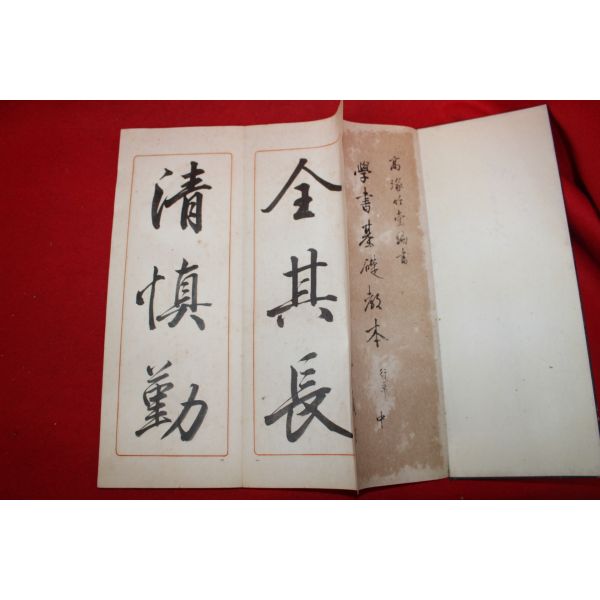 高塚竹堂編書
学書基礎教本 行草 中
全其長
清慎勤